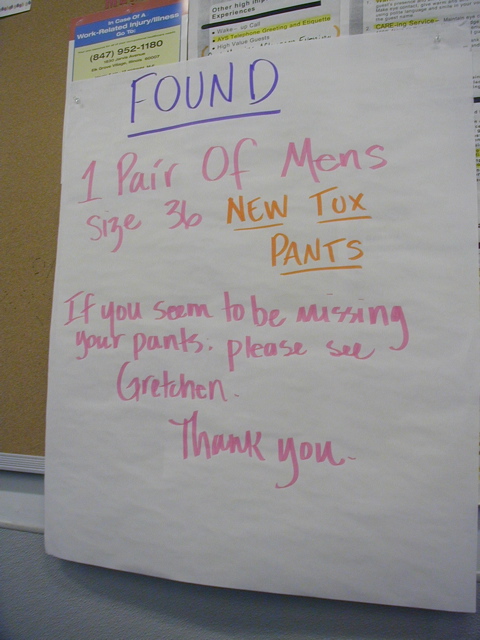 In Case Of A
Work-Related Injury/Illness
Go To:
(847) 952-1180
Other high imp
Experiences
Wake - Call
AYS Telephone Greeting and Etiquette
High Value Guests
CARE-ing Service
FOUND
1 Pair Of Mens
size 36 NEW TUX
PANTS
If you seem to be missing
your pants. please see
Gretchen.
Thank you.